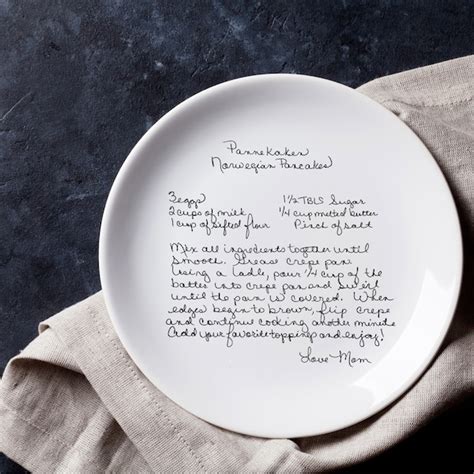 Pannekaken
Norwegian Pancakes
3 eggs 1½ TBLS Sugar
2 cups of milk ¼ cup melted butter
1 cup of sifted flour Pinch of salt
Mix all ingredients together until
smooth. Grease crepe pan.
Using a ladle, pour ¼ cup of the
batter into crepe pan and swirl
until the pan is covered. When
edges begin to brown, flip crepe
and continue cooking another minute.
Add your favorite topping and enjoy!
Love Mom